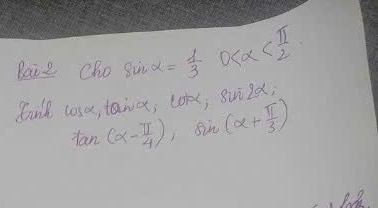 Bài 2 Cho sin α = 1/3 0 < α < π/2.
Tính cos α, tan α, cot α, sin 2α;
tan (α - π/4), sin (α + π/3)